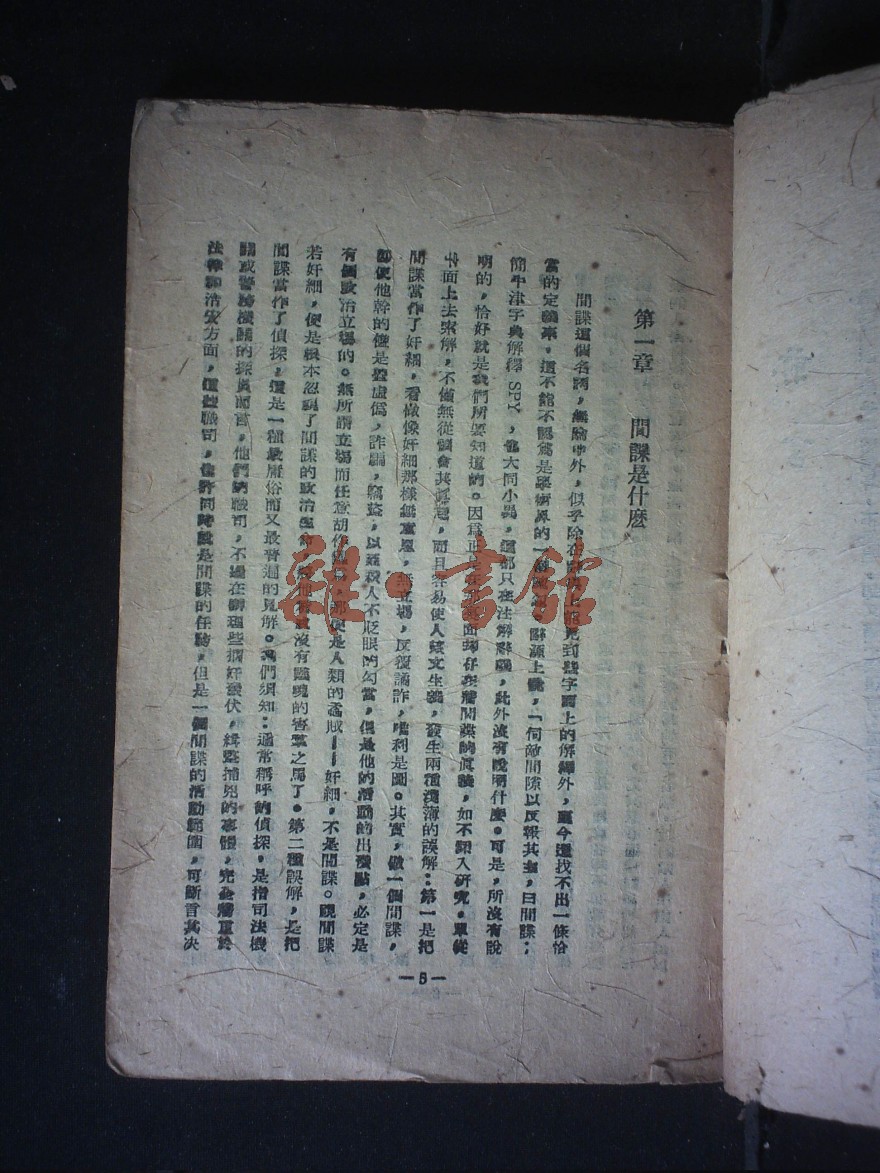 第一章　間諜是什麽
間諜這個名詞，無論中外，似乎除在辭典上能見到些字面上的解釋外，至今還找不出一條恰
當的定義來，這不能不認爲是學術界的一個。辭源上說，「伺敵間隙以反報其主，曰間諜；
簡牛津字典解釋 SPY，也大同小異，這都只在注解辭義，此外沒有說明什麼。可是，所沒有說
明的，恰好就是我們所要知道的。因爲正面却存在着間諜的眞義，如不深入研究，單從
書面上去索解，不僅無從領會其，而且容易使人緣文生義，發生兩種淺薄的誤解：第一是把
間諜當作了奸細，看做像奸細那樣無，無立場，反覆譎詐，唯利是圖。其實，做一個間諜，
卽使他幹的儘是虛僞，詐騙，竊盜，以至殺人不眨眼的勾當，但是他的活動的出發點，必定是
有個政治立場的。無所謂立場而任意胡作，那便是人類的蟊賊——奸細，不是間諜。視間諜
若奸細，便是根本忽視了間諜的政治生命，沒有靈魂的害羣之馬了。第二種誤解，是把
間諜當作了偵探，這是一種最庸俗而又最普遍的見解。我們須知：通常稱呼的偵探，是指司法機
關或警務機關的探員而言，他們的職司，不過在辦理些摘奸發伏，緝盜捕兇的事體，完全着重於
法律和治安方面，這種職司，也許同時就是間諜的任務，但是一個間諜的活動範圍，可斷言其决
—5—
雜·書館